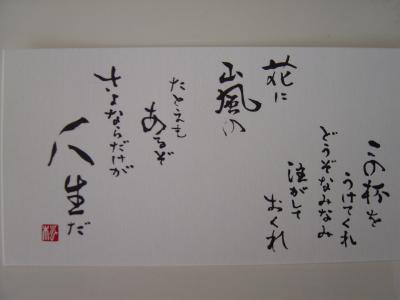 この杯を
うけてくれ
どうぞなみなみ
注がして
おくれ
花に
嵐の
たとえも
あるぞ
さよならだけが
人生だ